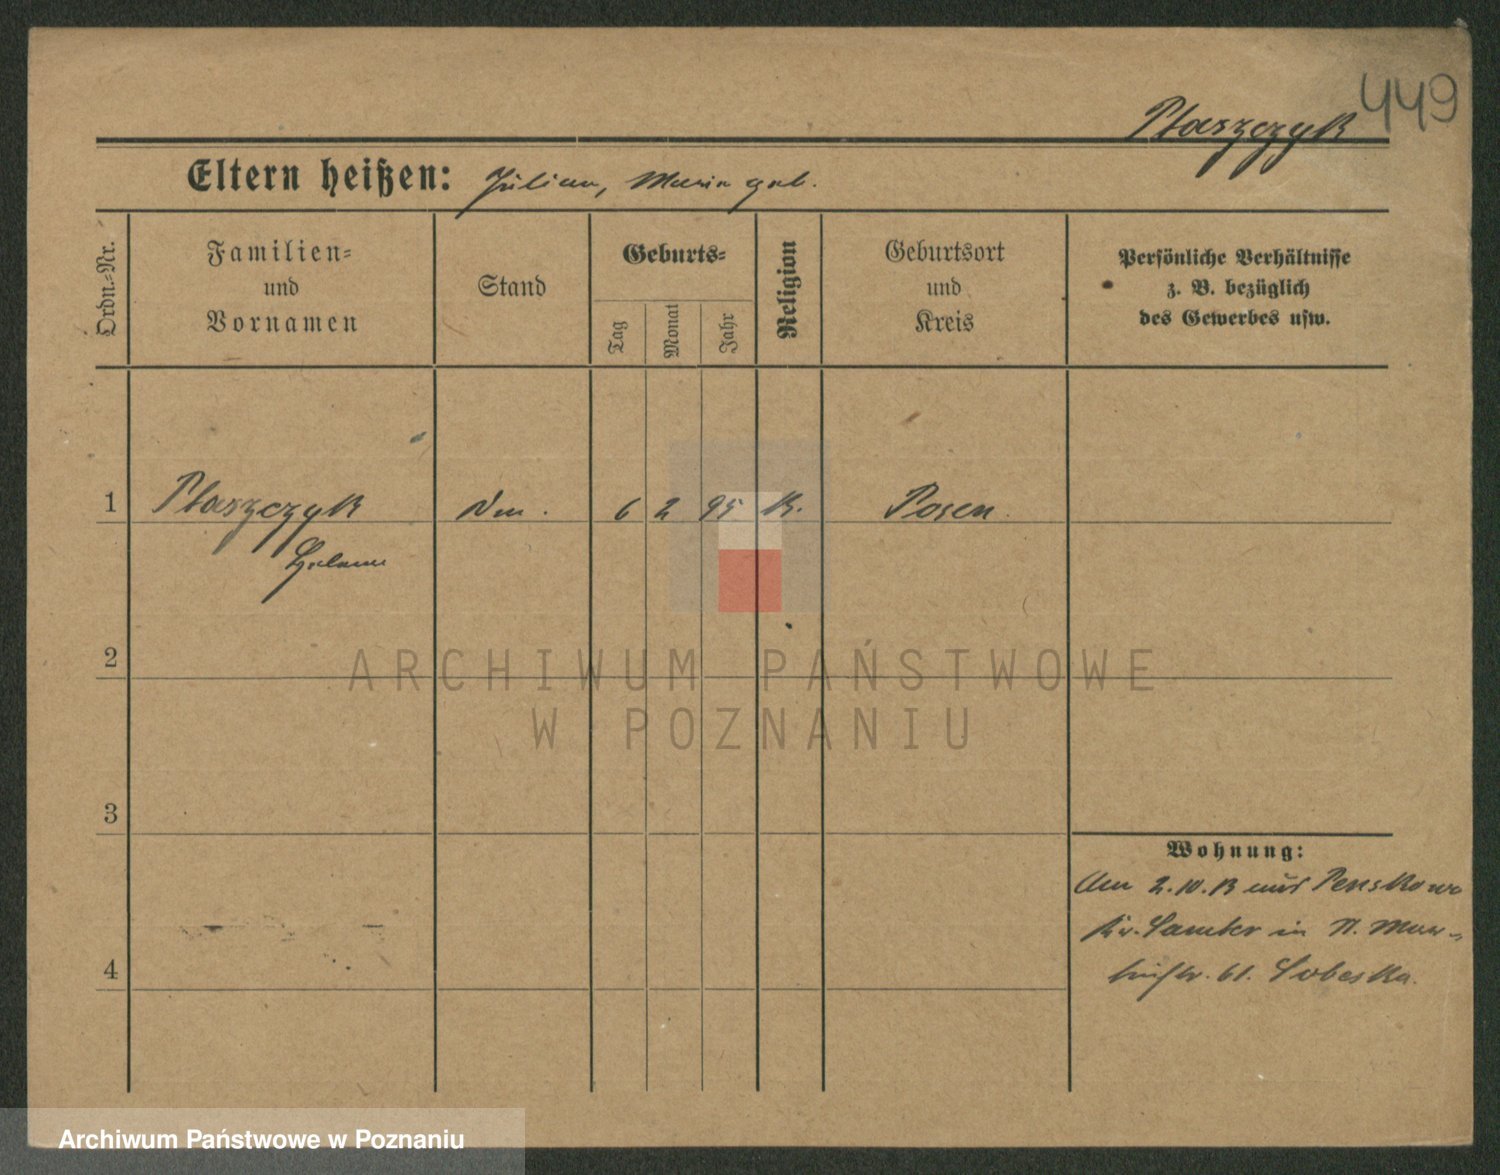 449
Ptaszczyk
Eltern heißen: Julian, Maria geb.
Ordn.-Nr.
Familien-
und
Vornamen
Stand
Geburts-
Tag
Monat
Jahr
Religion
Geburtsort
und
Kreis
Persönliche Verhältnisse
z. B. bezüglich
des Gewerbes usw.
1 Ptaszczyk 6 2 95 K. Posen
Helene
2
3
4
Wohnung:
Am 2.10.13 aus Penskowo
Kr. Samter in N. Mar-
tinstr. 61. Sobeska.
ARCHIWUM PAŃSTWOWE
W POZNANIU
Archiwum Państwowe w Poznaniu